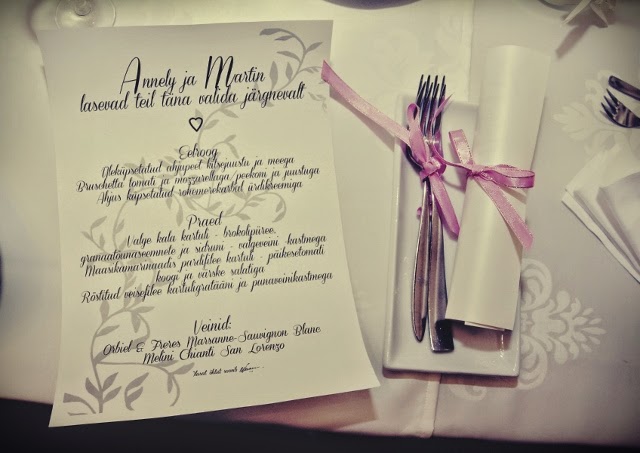 Annely ja Martin
lasevad teil täna valida järgnevalt
Eelroog
Üleküpsetatud ahjupeet kitsejuustu ja meega
Bruschetta tomati ja mozzarellaga/peekoni ja juustuga
Ahjus küpsetatud rohemerekarbid ürdikreemiga
Praed
Valge kala kartuli - brokolipüree,
granaatõunaseemnete ja sidruni - valgeveini -kastmega
Maasikamarinaadis pardifilee kartuli - päikesetomati
koogi ja värske salatiga
Röstitud veisefilee kartuligratääni ja punaveinikastmega
Veinid:
Orbiel & Freres Marsanne-Sauvignon Blanc
Melini Chianti San Lorenzo